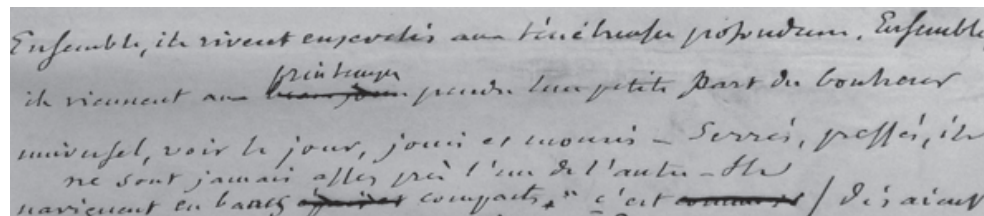 Ensemble, ils vivent ensevelis aux ténébreuses profondeurs. Ensemble
printemps
ils viennent au beau jour prendre leur petite part du bonheur
universel, voir le jour, jouir et mourir – Serrés, pressés, ils
ne sont jamais assez près l'un de l'autre – Ils
naviguent en bancs compacts, " c'est comme si / disaient